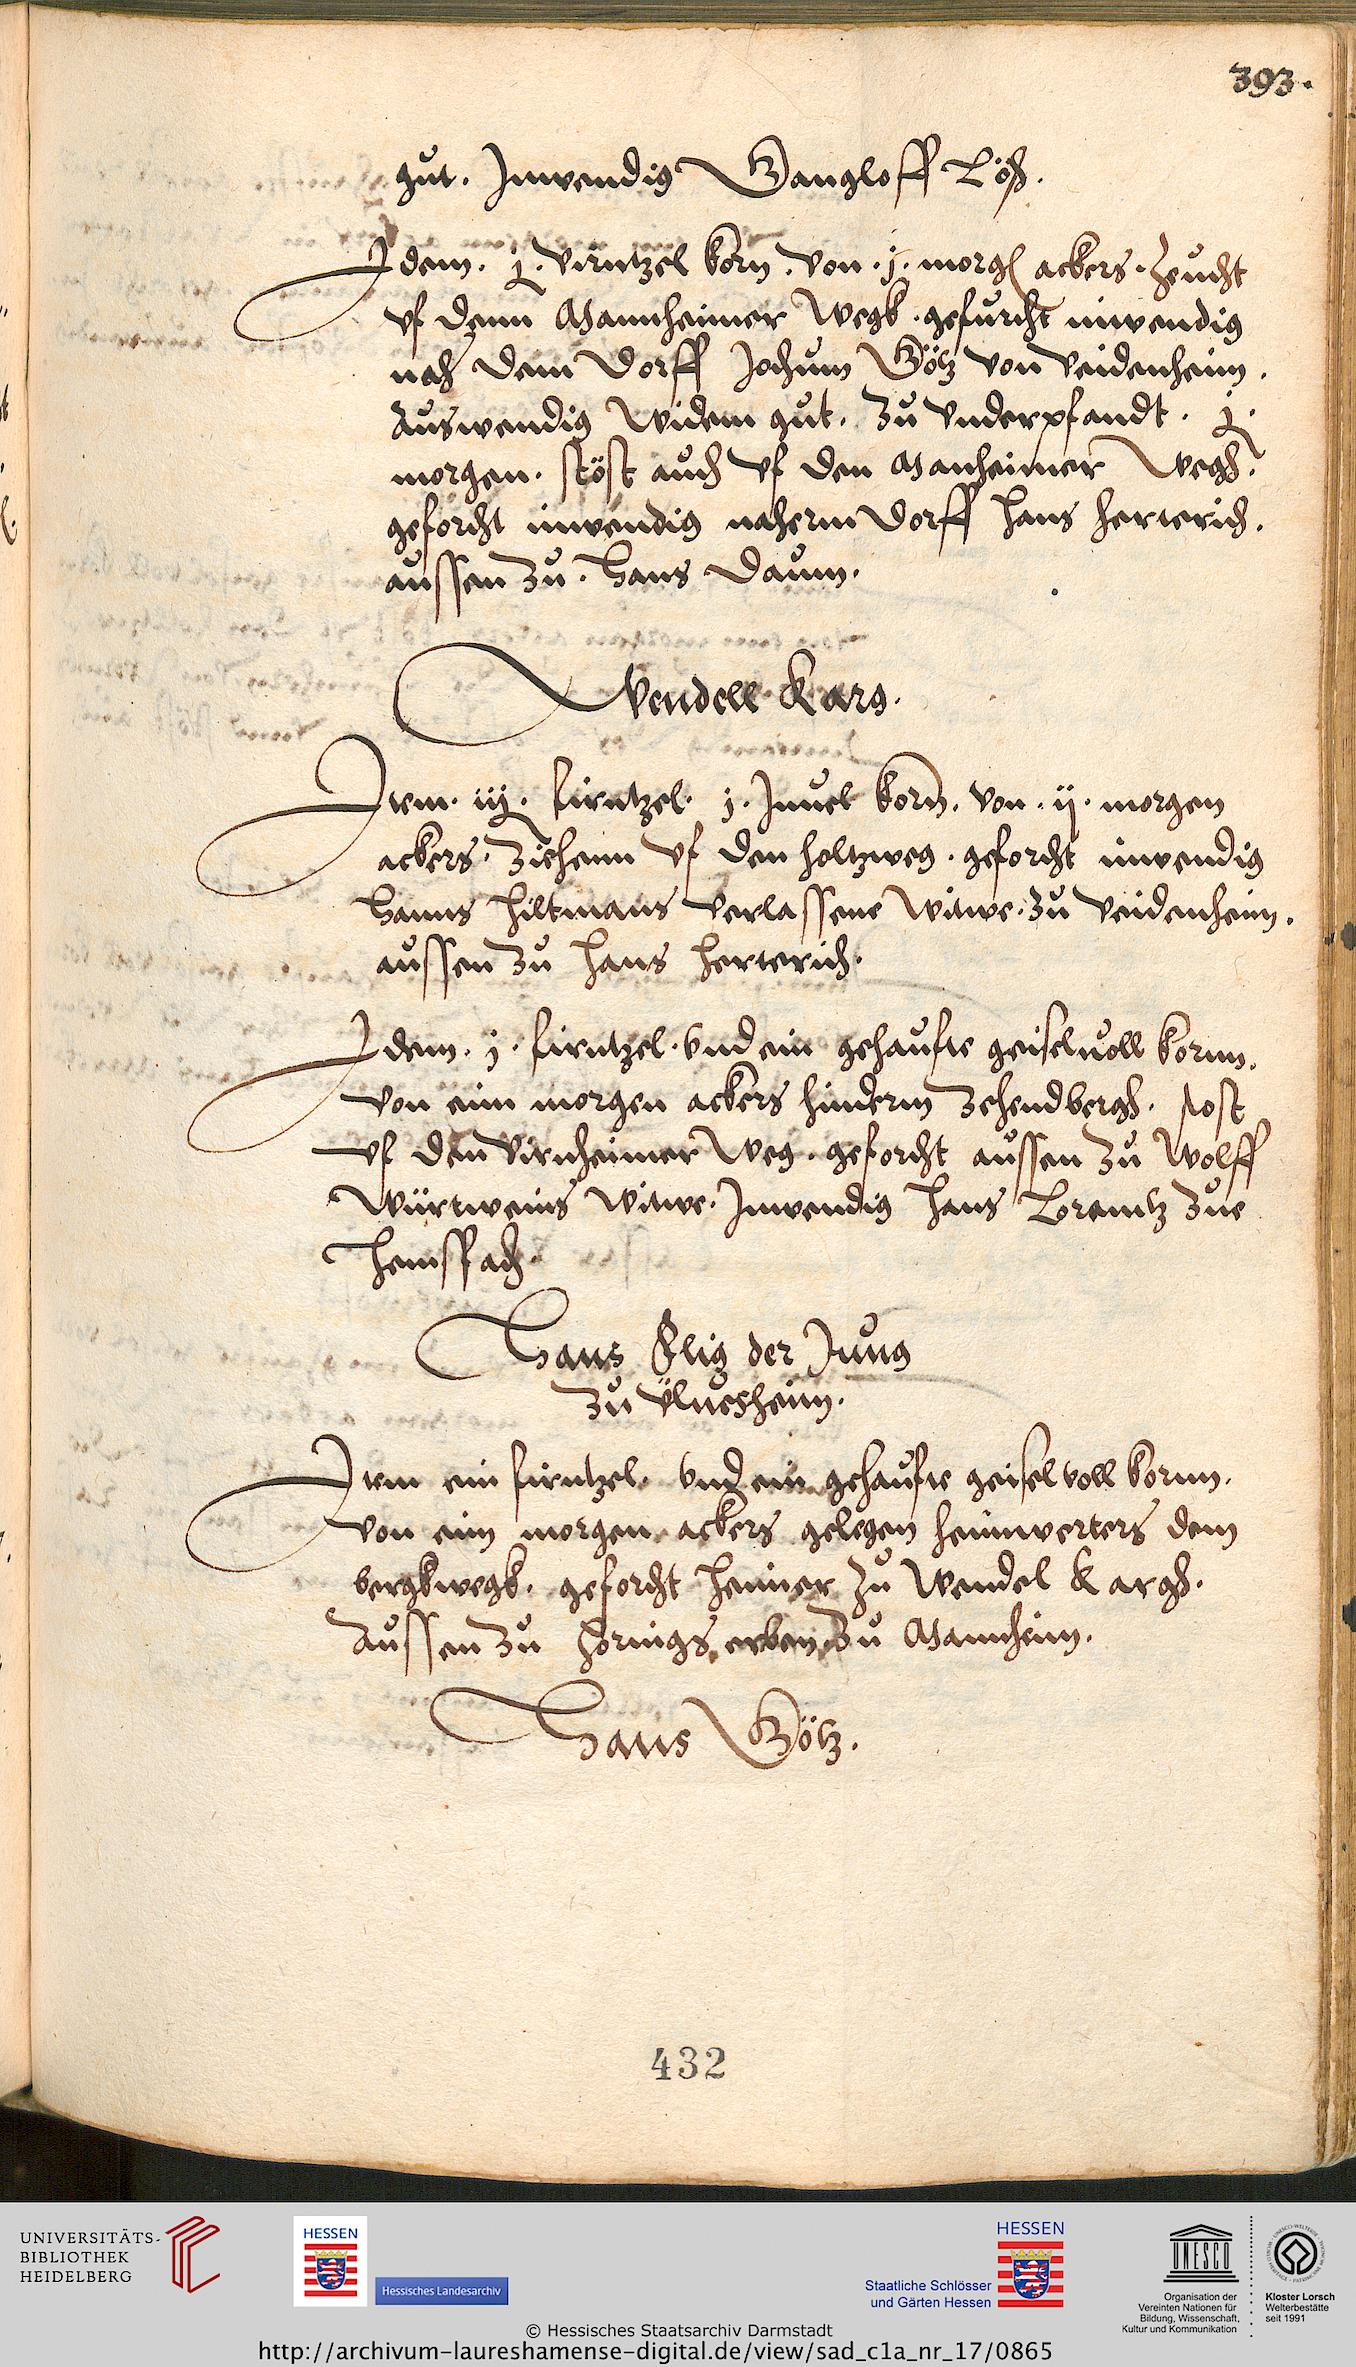 393.
gut. Inwendig Gangloff Löß.
Idem. j. virntzel korn. von. j. morgen ackers. Zeucht
vf denn Mannheimer Wegk. gefurcht inwendig
nach dem Dorff Jochum Götz von Veidenheim.
Auswendig Widem gut. Zu vnderpfandt.
morgen. stöst auch vf den Manheimer Wegh.
geforcht inwendig naherm Dorff Hans Herterich.
aussen zu. Hans Daum.
Wendell Karg.
Item. iij. firntzel. j. Immel korn. von. ij. morgen
ackers. Ziehenn vf den holtzweg. geforcht inwendig
Hanns Hiltmans verlassene Witwe. zu Veidenheim.
aussen zu Hans Herterich.
Idem. j. firntzel. vnd ein gehaufte geiseluoll kornn.
von eim morgen ackers hinderm Zehendbergh. stost
vf den Virnheimer Weg. geforcht aussen zu Wolff
Würtweins Witwe. Inwendig Hans Lorentz zue
Hemspach.
Hans der Jung
zu Vluesheim.
Item ein firntzel. vnd ein gehaufte geiselvoll kornn.
von eim morgen ackers gelegen heimwerters dem
bergkwegk. geforcht heimer zu Wendel Kargh.
Aussen zu erben zu Mannheim.
Hans Götz.
432
UNIVERSITÄTS-
BIBLIOTHEK
HEIDELBERG
HESSEN
Hessisches Landesarchiv
HESSEN
Staatliche Schlösser
und Gärten Hessen
UNESCO
Organisation der
Vereinten Nationen für
Bildung, Wissenschaft,
Kultur und Kommunikation
Kloster Lorsch
Welterbestätte
seit 1991
© Hessisches Staatsarchiv Darmstadt
http://archivum-laureshamense-digital.de/view/sad_c1a_nr_17/0865